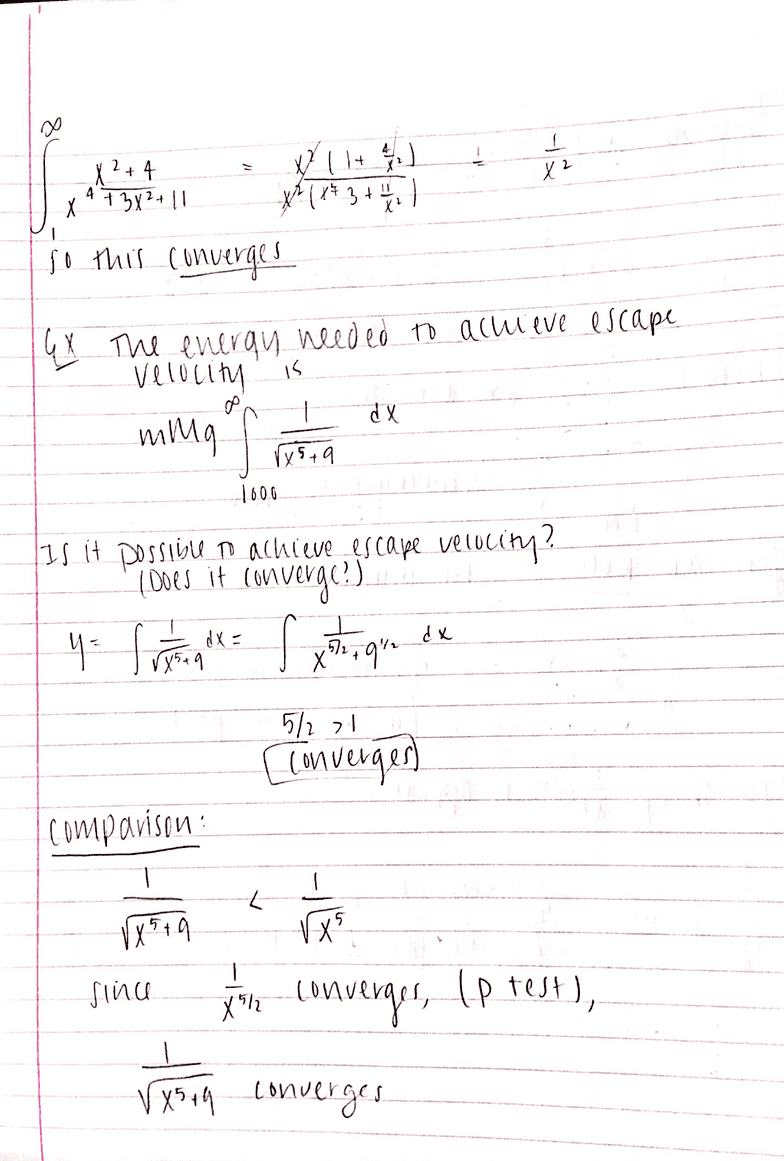 ∫₁^∞ (x² + 4)/(x⁴ + 3x² + 11) = x²(1 + 4/x²)/x²(x² + 3 + 11/x²) = 1/x²
so this converges
Ex The energy needed to achieve escape
velocity is
mMg ∫₁₀₀₀^∞ 1/√(x⁵+9) dx
Is it possible to achieve escape velocity?
(Does it converge?)
y = ∫ 1/√(x⁵+9) dx = ∫ 1/(x^(5/2) + 9^(1/2)) dx
5/2 > 1
converges
comparison:
1/√(x⁵+9) < 1/√x⁵
since 1/x^(5/2) converges, (p test),
1/√(x⁵+9) converges